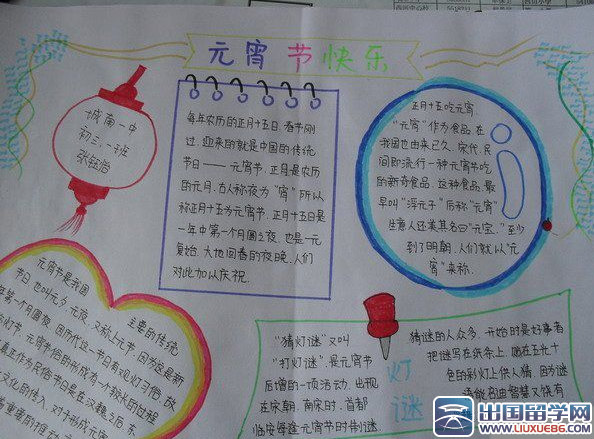 元宵节快乐
城南一中
初三.一班
张钰怡
每年农历的正月十五日,春节刚
过,迎来的就是中国的传统
节日——元宵节.正月是农历
的元月,古人称夜为“宵”所以
称正月十五为元宵节.正月十五日是
一年中第一个月圆之夜,也是一元
复始,大地回春的夜晚,人们
对此加以庆祝.
正月十五吃元宵.
“元宵”作为食品,在
我国也由来已久.宋代,民
间即流行一种元宵节吃
的新奇食品.这种食品,最
早叫“浮元子”后称“元宵”
生意人还美其名曰“元宝.”至少
到了明朝,人们就以“元
宵”来称.
元宵节是我国
主要的传统
节日,也叫元夕,元夜,又称上元节,因为这是新
第一个月圆夜.因历代这一节日有观灯习俗,故
灯节.元宵节俗的形成有一个较长的过程
真正作为民俗节日是在汉魏之后.东
文化的传入,对于形成元宵
灯谜
“猜灯谜”又叫
“打灯谜”是元宵节
后增的一项活动,出现
在宋朝.南宋时,首都
临安每逢元宵节时制谜,
猜谜的人众多.开始时是好事者
把谜写在纸条上,贴在五光十
色的彩灯上供人猜.因为谜
语能启迪智慧又饶有
出国留学网
www.liuxue86.com